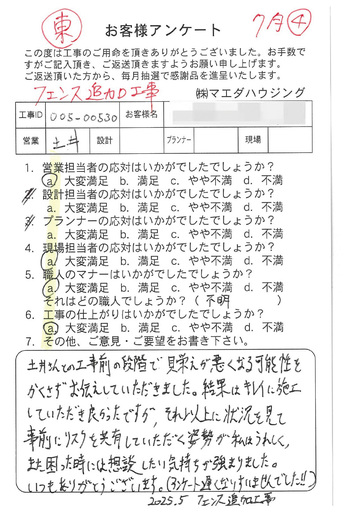 東
お客様アンケート
7月④
この度は工事のご用命を頂きありがとうございました。お手数で
すがご記入頂き、ご返送頂きますようお願い申し上げます。
ご返送頂いた方から、毎月抽選で感謝品を進呈いたします。
フェンス追加工事
㈱マエダハウジング
工事ID 005-00530 お客様名
営業 土井 設計 プランナー 現場
1. 営業担当者の応対はいかがでしたでしょうか?
a. 大変満足 b. 満足 c. やや不満 d. 不満
2. 設計担当者の応対はいかがでしたでしょうか?
a. 大変満足 b. 満足 c. やや不満 d. 不満
3. プランナーの応対はいかがでしたでしょうか?
a. 大変満足 b. 満足 c. やや不満 d. 不満
4. 現場担当者の応対はいかがでしたでしょうか?
a. 大変満足 b. 満足 c. やや不満 d. 不満
5. 職人のマナーはいかがでしたでしょうか?
a. 大変満足 b. 満足 c. やや不満 d. 不満
それはどの職人でしょうか? ( 不明 )
6. 工事の仕上がりはいかがでしたでしょうか?
a. 大変満足 b. 満足 c. やや不満 d. 不満
7. その他、ご意見・ご要望をお書き下さい。
土井さんとの工事前の段階で見栄えが悪くなる可能性を
かくさずお伝えしていただきました。結果はキレイに施工
していただき良かったですが、それ以上に状況を見て
事前にリスクを共有していただく姿勢が私はうれしく、
また困った時には相談したい気持ちが強まりました。
いつもありがとうございます。(アンケート遅くなりすいませんでした!!)
2025.5 フェンス追加工事